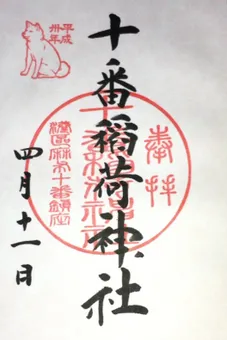 奉拝
十番稲荷神社
平成
卅年
港区麻布十番鎮座
四月十一日